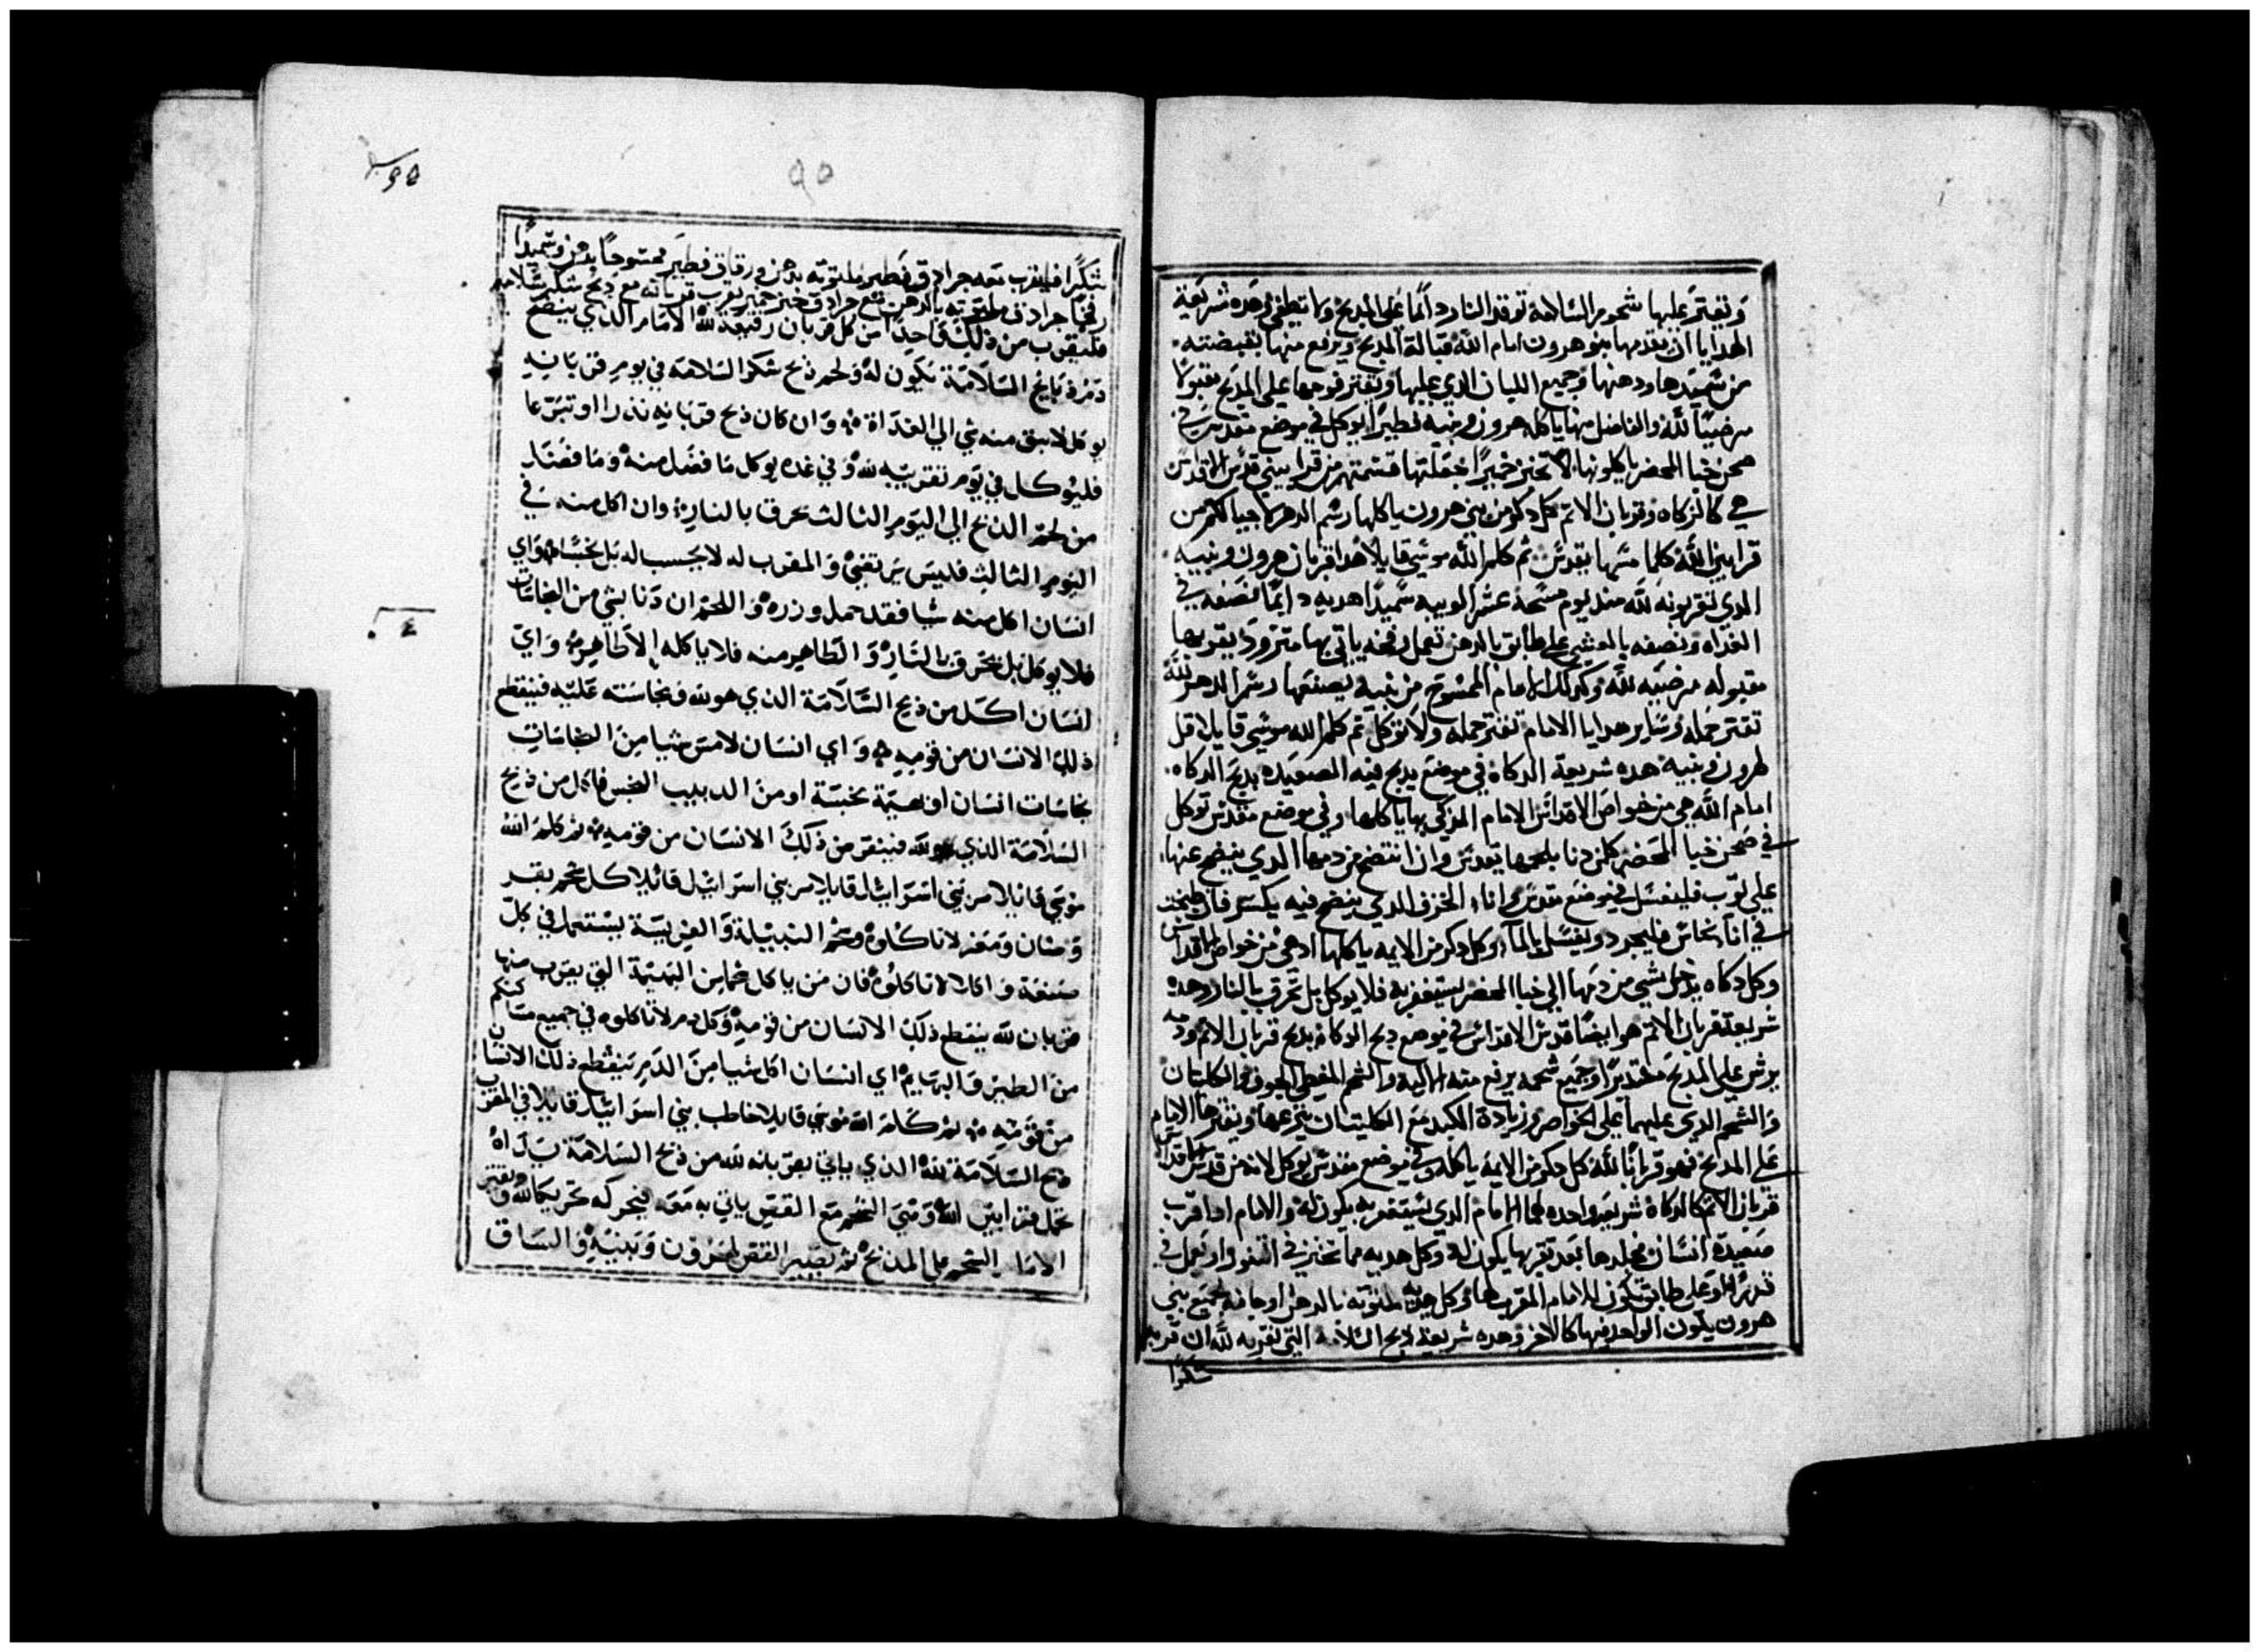 وتقتر عليها شحوم السلامة توقد النار دائما على المدبح ولا تطفئ وهده شريعة
الهدايا ان يقدمها بنو هرون امام الله قبالة المدبح ويرفع منها بقبضته
من سميدها ودهنها وجميع اللبان الدي عليها ويقتر فوحها على المدبح مقبولا
مرضيا لله والفاضل منها ياكله هرون وبنيه فطيرا يوكل في موضع مقدس في
صحن خبا المحضر ياكلونها لا تخبز خميرا جعلتها قسمتهم من قرابيني قدس الاقداس
هي كالزكاه وقربان الاتم كل دكر من بني هرون ياكلها رسم الدهر لاجيالكم من
قرابين الله كلما مسها يقدس ثم كلم الله موسي قايلا هدا قربان هرون وبنيه
الدي يقربونه لله مند يوم مسحه عشر الويبه سميدا هديه دايما نصفه في
الغداه ونصفه بالعشي على طابق بالدهن تعمل ياتي بها يقربها
مقبوله مرضيه لله وكدلك الامام الممسوح من بنيه يصنعها رسم الدهر لله
تقتر جمله وساير هدايا الامام تقتر جمله ولا توكل ثم كلم الله موسي قايلا قل
لهرون وبنيه هده شريعة الدكاة في موضع يدبح فيه الصعيده يدبح الدكاه
امام الله هي من خواص الاقداس الامام المزكي بها ياكلها وفي موضع مقدس توكل
في صحن خبا المحضر كلمن دنا بلحمها تقدس وان انتضح من دمها الدي ينضح عنها
علي توب فليغسل في موضع مقدس واناء الخزف الدي ينضح فيه يكسر فان طبخت
في انا نحاس فليجرد ويغسل بالماء وكل دكر من الايمه ياكلها اد هي من خواص الاقداس
وكل دكاه يدخل شي من دمها الي خبا المحضر يستغفر به فلا يوكل بل تحرق بالنار وهده
شريعة قربان الاتم هو ايضا قدس الاقداس في موضع دبح الدكاة يدبح قربان الاتم ودمه
يرش علي المدبح مستديرا وجميع شحمه يرفع منه الاليه والشحم المغطي الجوف والكليتان
والشحم الدي عليهما على الخواصر وزيادة الكبد مع الكليتان ينزعها ويقترها الامام
على المدبح فهو قربانا لله كل دكر من الايمه ياكله وفي موضع مقدس يوكل لانه من قدس الاقداس
قربان الاتم كالدكاة شريعه واحده لهما الامام الدي يستغفر به يكون له والامام ادا قرب
صعيدة انسان فجلدها بعد تقربها يكون له وكل هديه مما تخبز في التنور او تعمل في
قدر او على طابق تكون للامام المقربها وكل هديه ملتوته بالدهن او جافه لجميع بني
هرون يكون الواحد فيها كالاخر وهده شريعة دبح السلامة التي تقربه لله ان قربه
شكرا
٩٥
95
شكرا فليقرب معه جرادق فطير ملتوته بدهن ورقاق فطير ممسوحا بدهن وسميدا
جرادق ملتوته بالدهن مع جرادق خبز خمير يقرب قربانه مع ذبح شكر سلامه
فليقرب من ذلك واحدا من كل قربان رفيعة لله الامام الذي ينضح
دم ذبايح السلامة تكون له ولحم ذبح شكر السلامة في يوم قربانه
يوكل لا يبق منه شي الي الغداة وان كان ذبح قربانه نذرا او تبرعا
فليوكل في يوم تقريبه لله وفي غده يوكل ما فضل منه وما فضل
من لحم الذبح الي اليوم الثالث يحرق بالنار وان اكل منه في
اليوم الثالث فليس يرتضي والمقرب له لا يحسب له بل نجسا واي
انسان اكل منه شيا فقد حمل وزره واللحم ان دنا بشي من النجاسات
فلا يوكل بل يحرق بالنار والطاهر منه فلا ياكله الا طاهر واي
انسان اكل من ذبح السلامة الذي هو لله ونجاسته عليه فينقطع
ذلك الانسان من قومه واي انسان لامس شيا من النجاسات
نجاسات انسان او بهيمة نجسة او من الدبيب النجس فاكل من ذبح
السلامة الذي هو لله فينقرض ذلك الانسان من قومه ثم كلم الله
موسي قائلا مر بني اسرائيل قايلا مر بني اسرائيل قائلا كل شحم بقر
وضان ومعز لا تاكلوه وشحم النبيلة والفريسة يستعمل في كل
صنعة واكلا لا تاكلوه فان من ياكل شحما من البهيمة التي يقرب منها
قربان لله ينقطع ذلك الانسان من قومه وكل دم لا تاكلوه في جميع مساكنكم
من الطير والبهايم اي انسان اكل شيا من الدم ينقطع ذلك الانسان
من قومه ثم كلم الله موسي قايلا خاطب بني اسرائيل قايلا في المقرب
ذبح السلامة لله الذي ياتي بقربانه لله من ذبح السلامة يداه
تحمل قرابين الله ومتي الشحم مع القص ياتي به معه فيحركه تحريكا لله ويقتر
الامام الشحم على المذبح ثم يصير القص لهرون وبنيه والساق